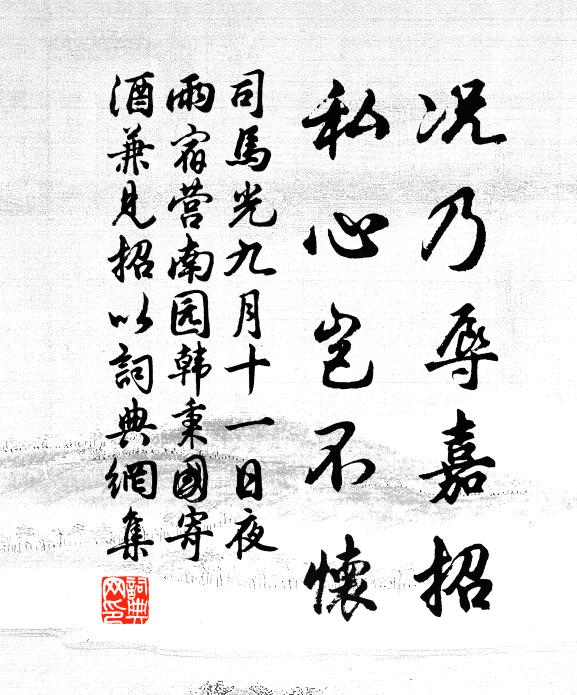 况乃辱嘉招
私心岂不懷
司馬光九月十一日夜
雨宿营南园韩秉國寄
酒兼見招以詞典網集
詞典网印